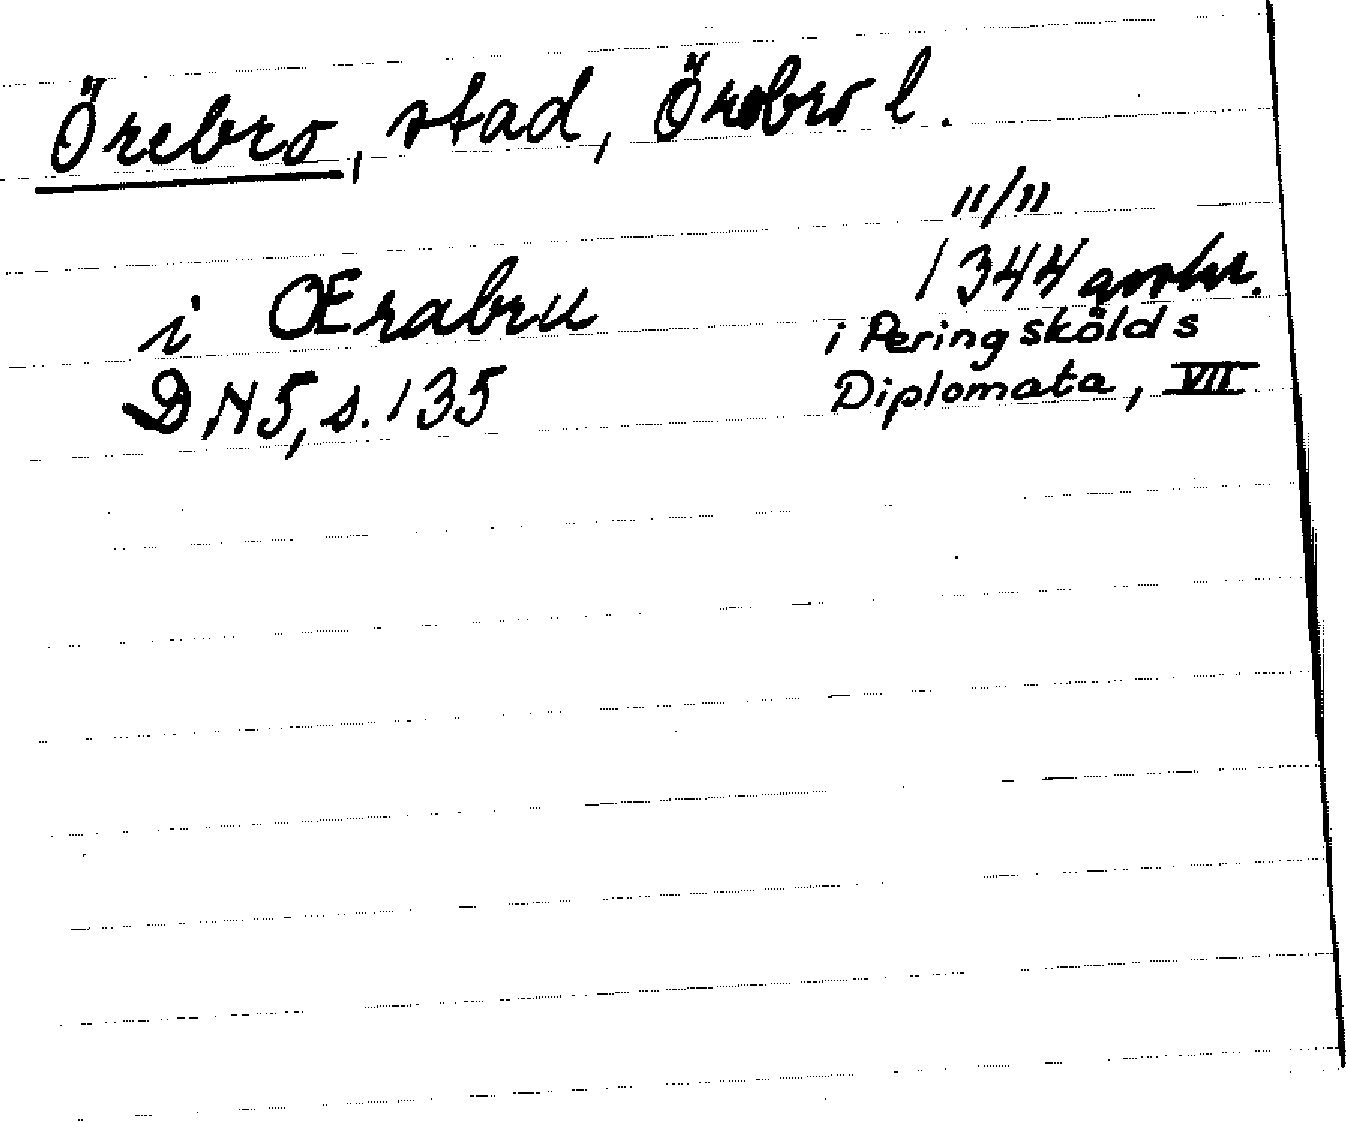 Örebro, stad, Örebro l.
11/11
i Œrabru 1344 avskr.
i Peringskölds
DN5, s. 135 Diplomata, VII